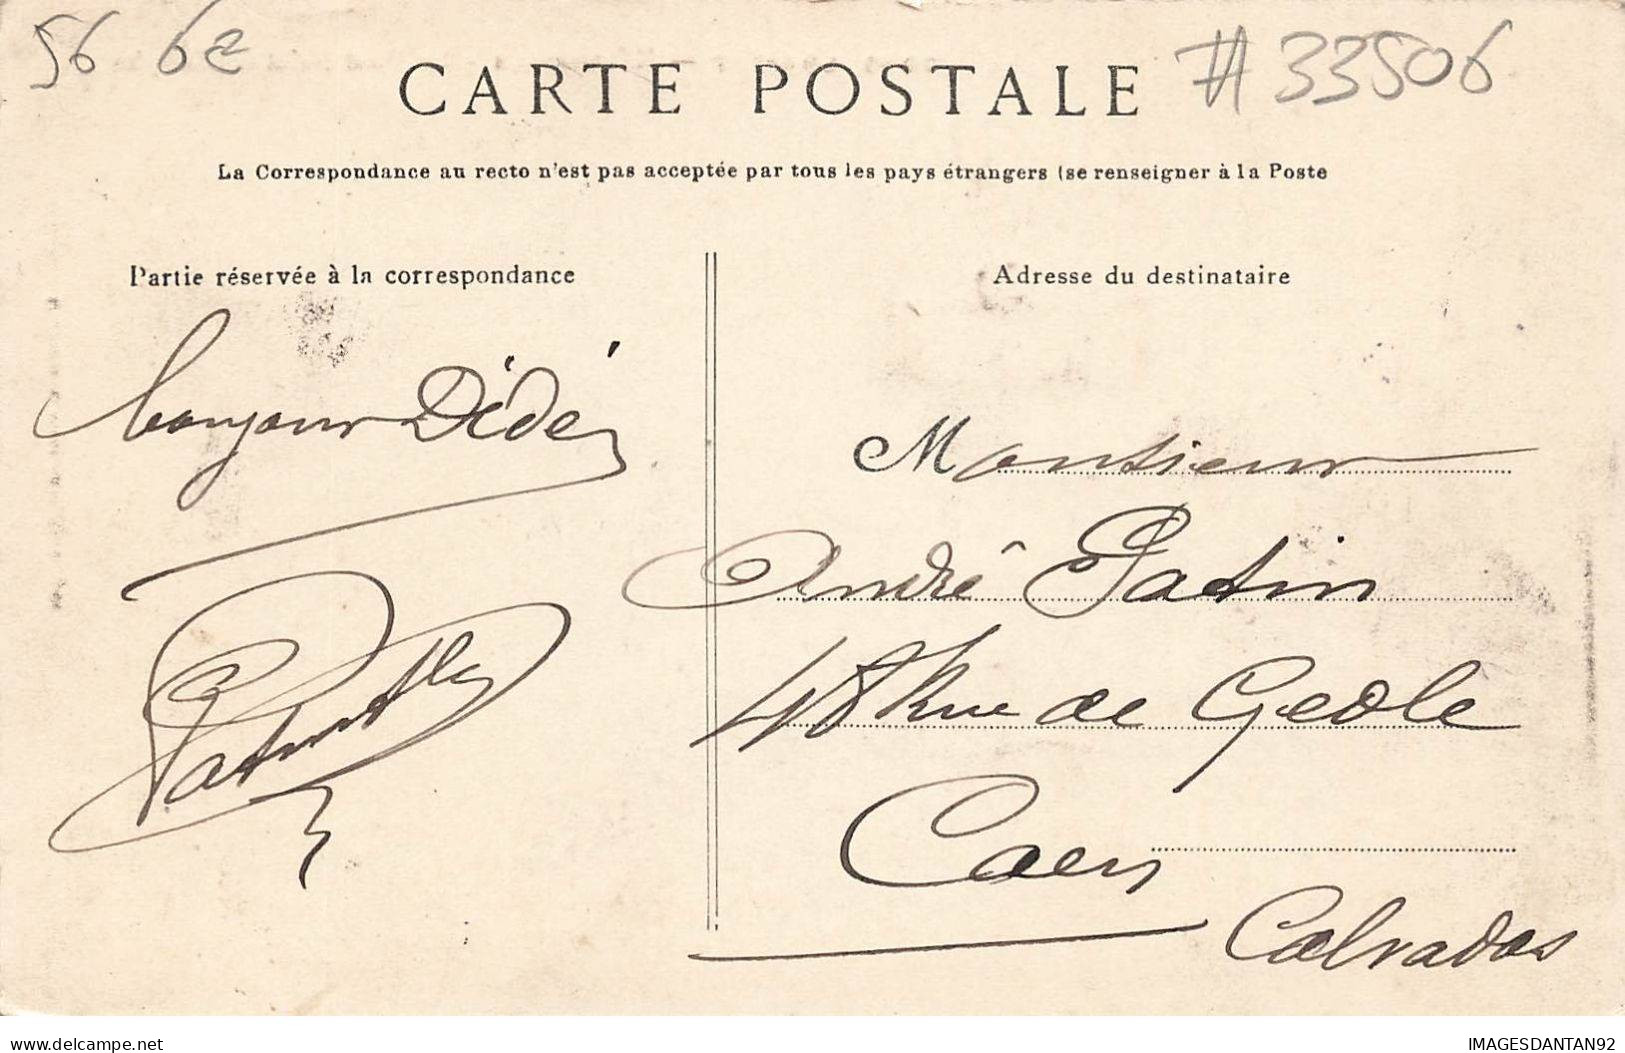 56 6e
CARTE POSTALE
#33506
La Correspondance au recto n'est pas acceptée par tous les pays étrangers (se renseigner à la Poste
Partie réservée à la correspondance
Adresse du destinataire
bonjour Dédé
Monsieur
André Patin
48 Rue de Geole
Caen
Calvados
delcampe.net
IMAGESDANTAN92